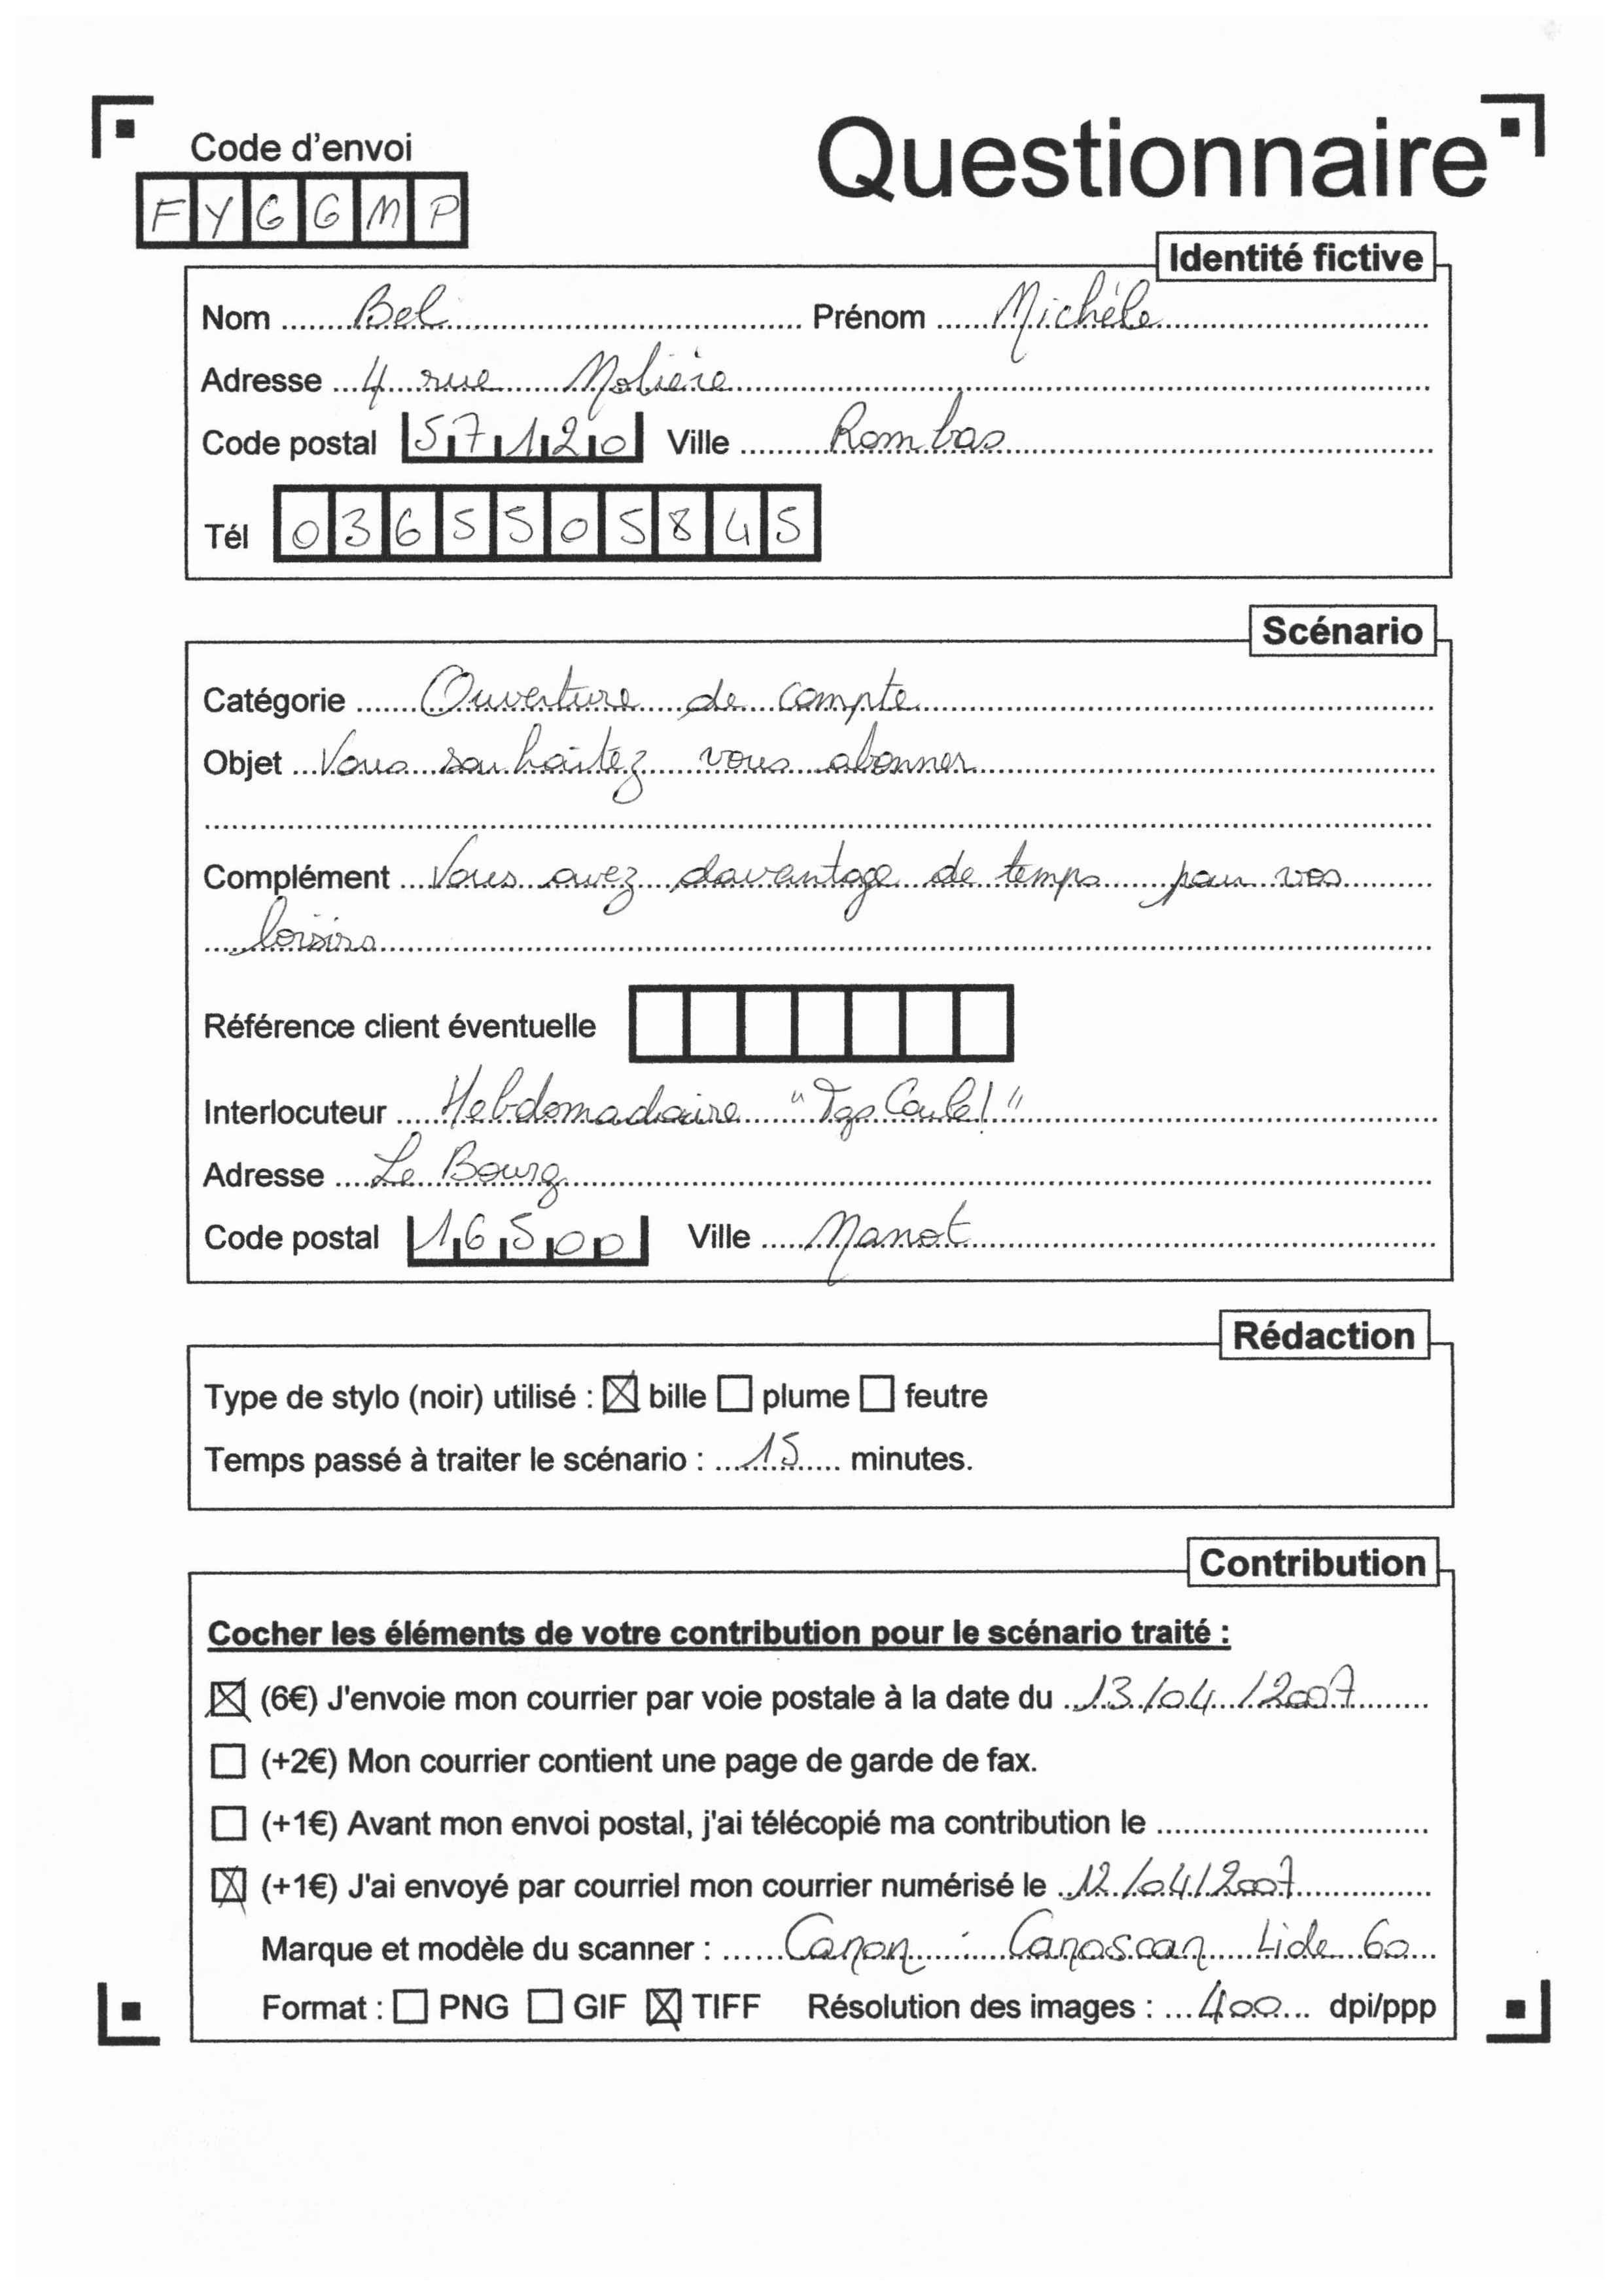 Code d'envoi
Questionnaire
FYGGMP
Identité fictive
Nom Bel Prénom Michèle
Adresse 4 rue Molière
Code postal 57120 Ville Rombas
Tél 0365505845
Scénario
Catégorie Ouverture de compte
Objet Vous souhaitez vous abonner
Complément Vous avez davantage de temps pour vos
loisirs
Référence client éventuelle
Interlocuteur Hebdomadaire "
Adresse Le Bourg
Code postal 16500 Ville Manot
Rédaction
Type de stylo (noir) utilisé : ☒ bille ☐ plume ☐ feutre
Temps passé à traiter le scénario : 15 minutes.
Contribution
Cocher les éléments de votre contribution pour le scénario traité :
☒ (6€) J'envoie mon courrier par voie postale à la date du 13/04/2007
☐ (+2€) Mon courrier contient une page de garde de fax.
☐ (+1€) Avant mon envoi postal, j'ai télécopié ma contribution le
☒ (+1€) J'ai envoyé par courriel mon courrier numérisé le 12/04/2007
Marque et modèle du scanner : Canon : Canoscan Lide 60
Format : ☐ PNG ☐ GIF ☒ TIFF Résolution des images : 400 dpi/ppp